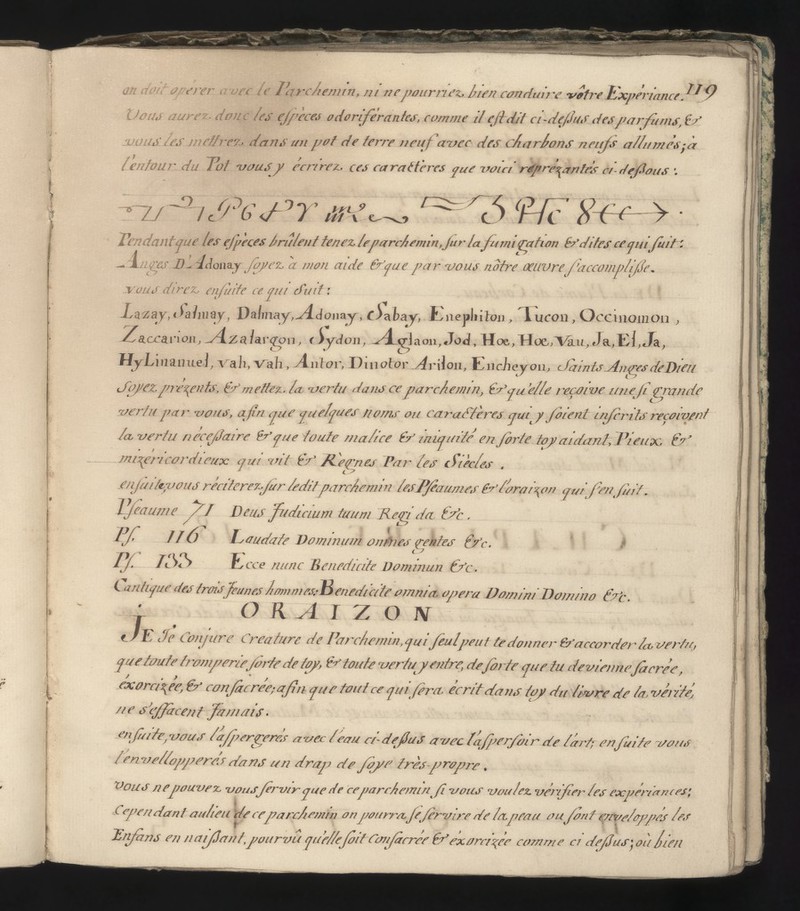 on doit opérer avec le Parchemin, ni ne pourriez bien conduire vôtre Expériance. 119
Vous aurez donc les espèces odoriférantes, comme il est dit ci-deßus des parfums, &
vous les mettrez dans un pot de terre neuf avec des charbons neufs allumés; à
l'entour du Pot vous y écrirez ces caractères que voici réprézantés ci-deßous:
Pendant que les espèces brûlent tenez le parchemin, sur la fumigation & dites ce qui suit:
Anges D'Adonay soyez à mon aide & que par vous nôtre œuvre s'accompliße.
vous direz ensuite ce qui suit:
Lazay, Salmay, Dalmay, Adonay, Sabay, Enephiton, Tucon, Occinomon,
Zaccarion, Azalargon, Sydon, Aglaon, Jod, Hoe, Hoe, Vau, Ja, El, Ja,
Hy Linanuel, vah, vah, Antor, Dinotor Arilon, Encheyon, Saints Anges de Dieu
Soyez prézents, & mettez la vertu dans ce parchemin, & qu'elle reçoive une si grande
vertu par vous, afin que quelques noms ou caractères qui y soient inscrits reçoivent
la vertu néceßaire & que toute malice & iniquité en sorte toy aidant, Pieux &
mizéricordieux qui vit & Règnes Par les Siècles.
ensuite, vous réciterez sur ledit parchemin les Pseaumes & l'oraizon qui s'en suit.
Pseaume 71 Deus Judicium tuum Regi da &c.
Ps. 116 Laudate Dominum omnes gentes &c.
Ps. 133 Ecce nunc Benedicite Dominun &c.
Cantique des trois Jeunes hommes: Benedicite omnia opera Domini Domino &c.
ORAIZON
JE Te Conjure Creature de Parchemin, qui seul peut te donner & accorder la vertu,
que toute tromperie sorte de toy, & toute vertu y entre, de sorte que tu devienne sacrée,
éxorcizée, & consacrée; afin que tout ce qui sera écrit dans toy du livre de la vérité,
ne s'effacent Jamais.
ensuite, vous l'aspergerés avec l'eau ci-deßus avec l'aspersoir de l'art; ensuite vous
l'envellopperés dans un drap de soye très-propre.
vous ne pouvez vous servir que de ce parchemin si vous voulez vérifier les expériances;
Cependant aulieu de ce parchemin on pourra se servire de la peau ou sont enveloppés les
Enfans en naißant, pourvû qu'elle soit Consacrée & éxorcizée comme ci deßus; où bien